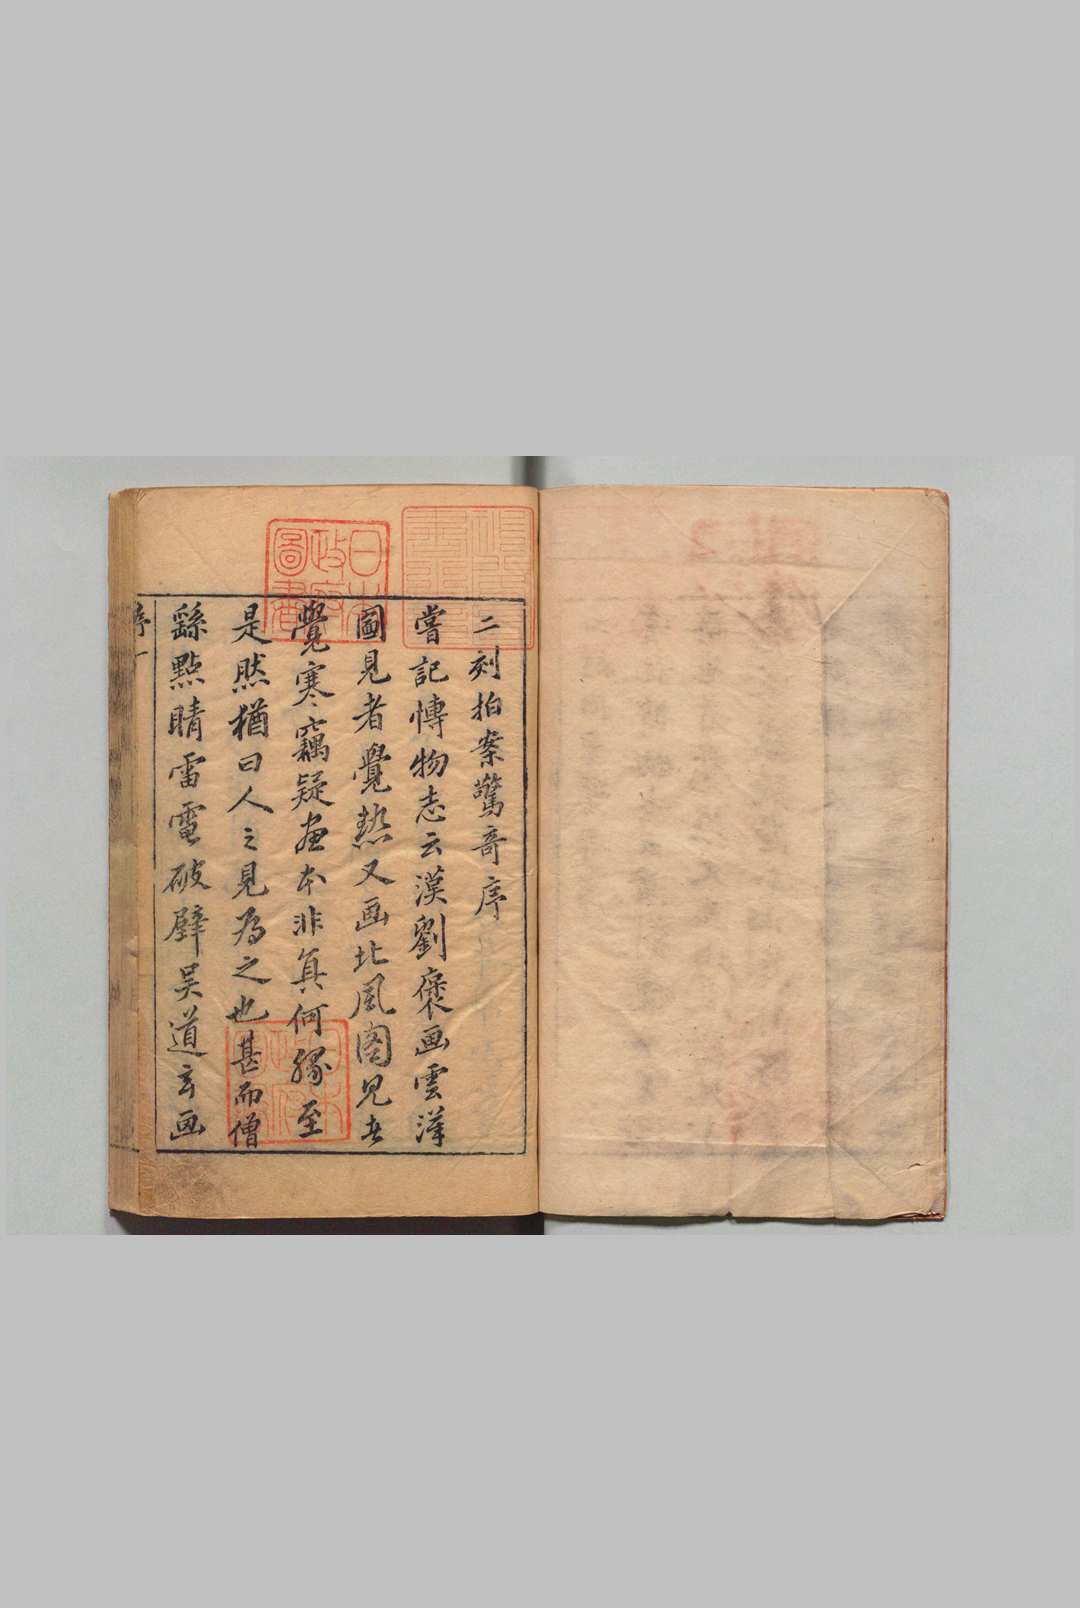 二刻拍案驚奇序
嘗記博物志云漢劉褒画雲漢
圖見者覺熱又画北風图見者
覺寒竊疑畫本非真何緣至
是然猶曰人之見為之也甚而僧
繇點睛雷電破壁吳道玄画
序一
日本
政府
圖書